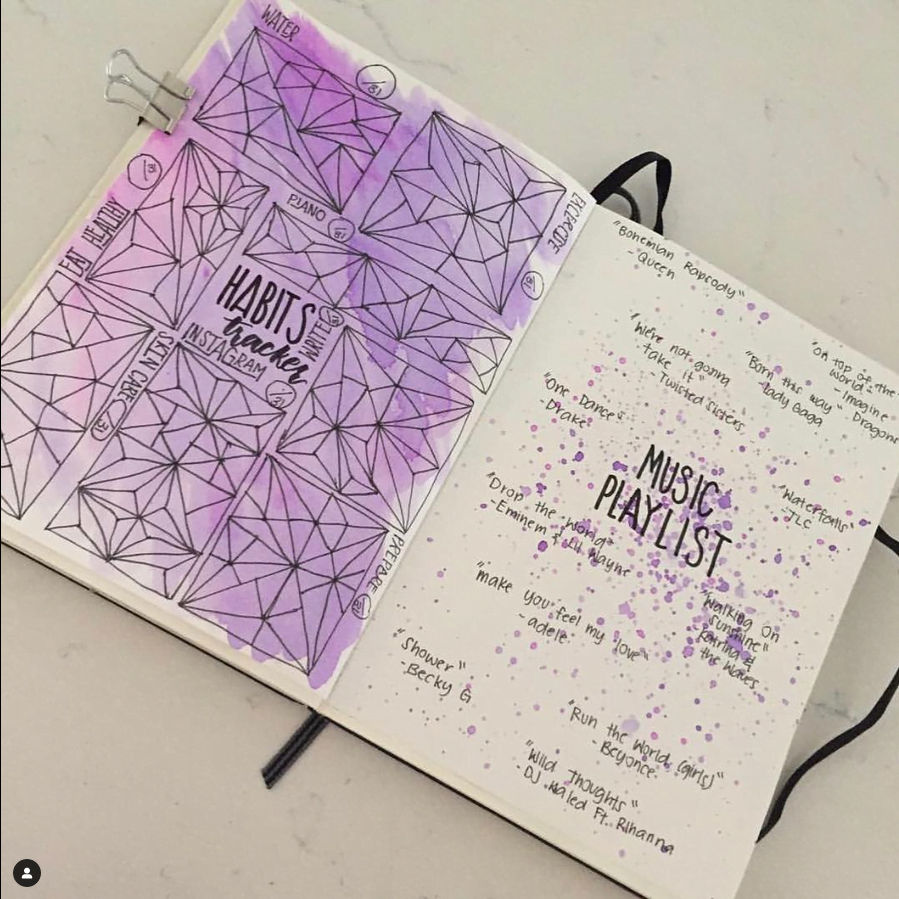 WATER
/31
EXCERCISE
/31
EAT HEALTHY
/31
PIANO
/31
HABITS
tracker
INSTAGRAM
WRITE
SKIN CARE
31
PREPARE
/31
"Bohemian Rapsody"
-Queen
"We're not gonna
take it"
-Twisted sisters
"Born this way"
-Lady Gaga
"On top of the
world"
-Imagine
Dragons
"One Dance"
-Drake
MUSIC
PLAYLIST
"Waterfalls"
-TLC
"Drop the World"
-Eminem & Lil Wayne
"Walking on
sunshine"
-Katrina &
the waves
"make you feel my love"
-adele
"Shower"
-Becky G
"Run the world (girls)"
-Beyonce
"Wild Thoughts"
-DJ Khaled Ft. Rihanna